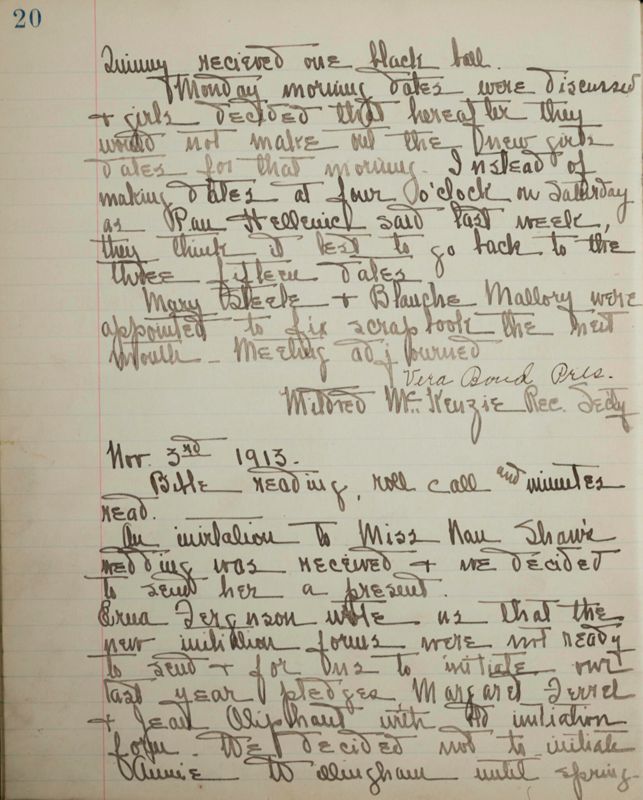 20
Quinny recieved one black ball.
Monday morning dates were discussed
+ girls decided that hereafter they
would not make out the new girls
dates for that morning. Instead of
making dates at four o'clock on Saturday
as Pan Hellenich said last week,
they think it best to go back to the
three fifteen dates
Mary Steele + Blanche Mallory were
appointed to fix scrap book the next
month - Meeting adjourned
Vera Bond Pres.
Mildred McKenzie Rec. Secty
Nov. 3rd 1913.
Bible reading, roll call and minutes
read.
An invitation to Miss Nan Shaw's
wedding was received + we decided
to send her a present.
Erna Fergnson wrote us that the
new initiation forms were not ready
to send + for us to initiate our
last year pledges, Margaret Ferrel
+ Jean Oliphant with old initiation
form. We decided not to initiate
Annie Willingham until spring